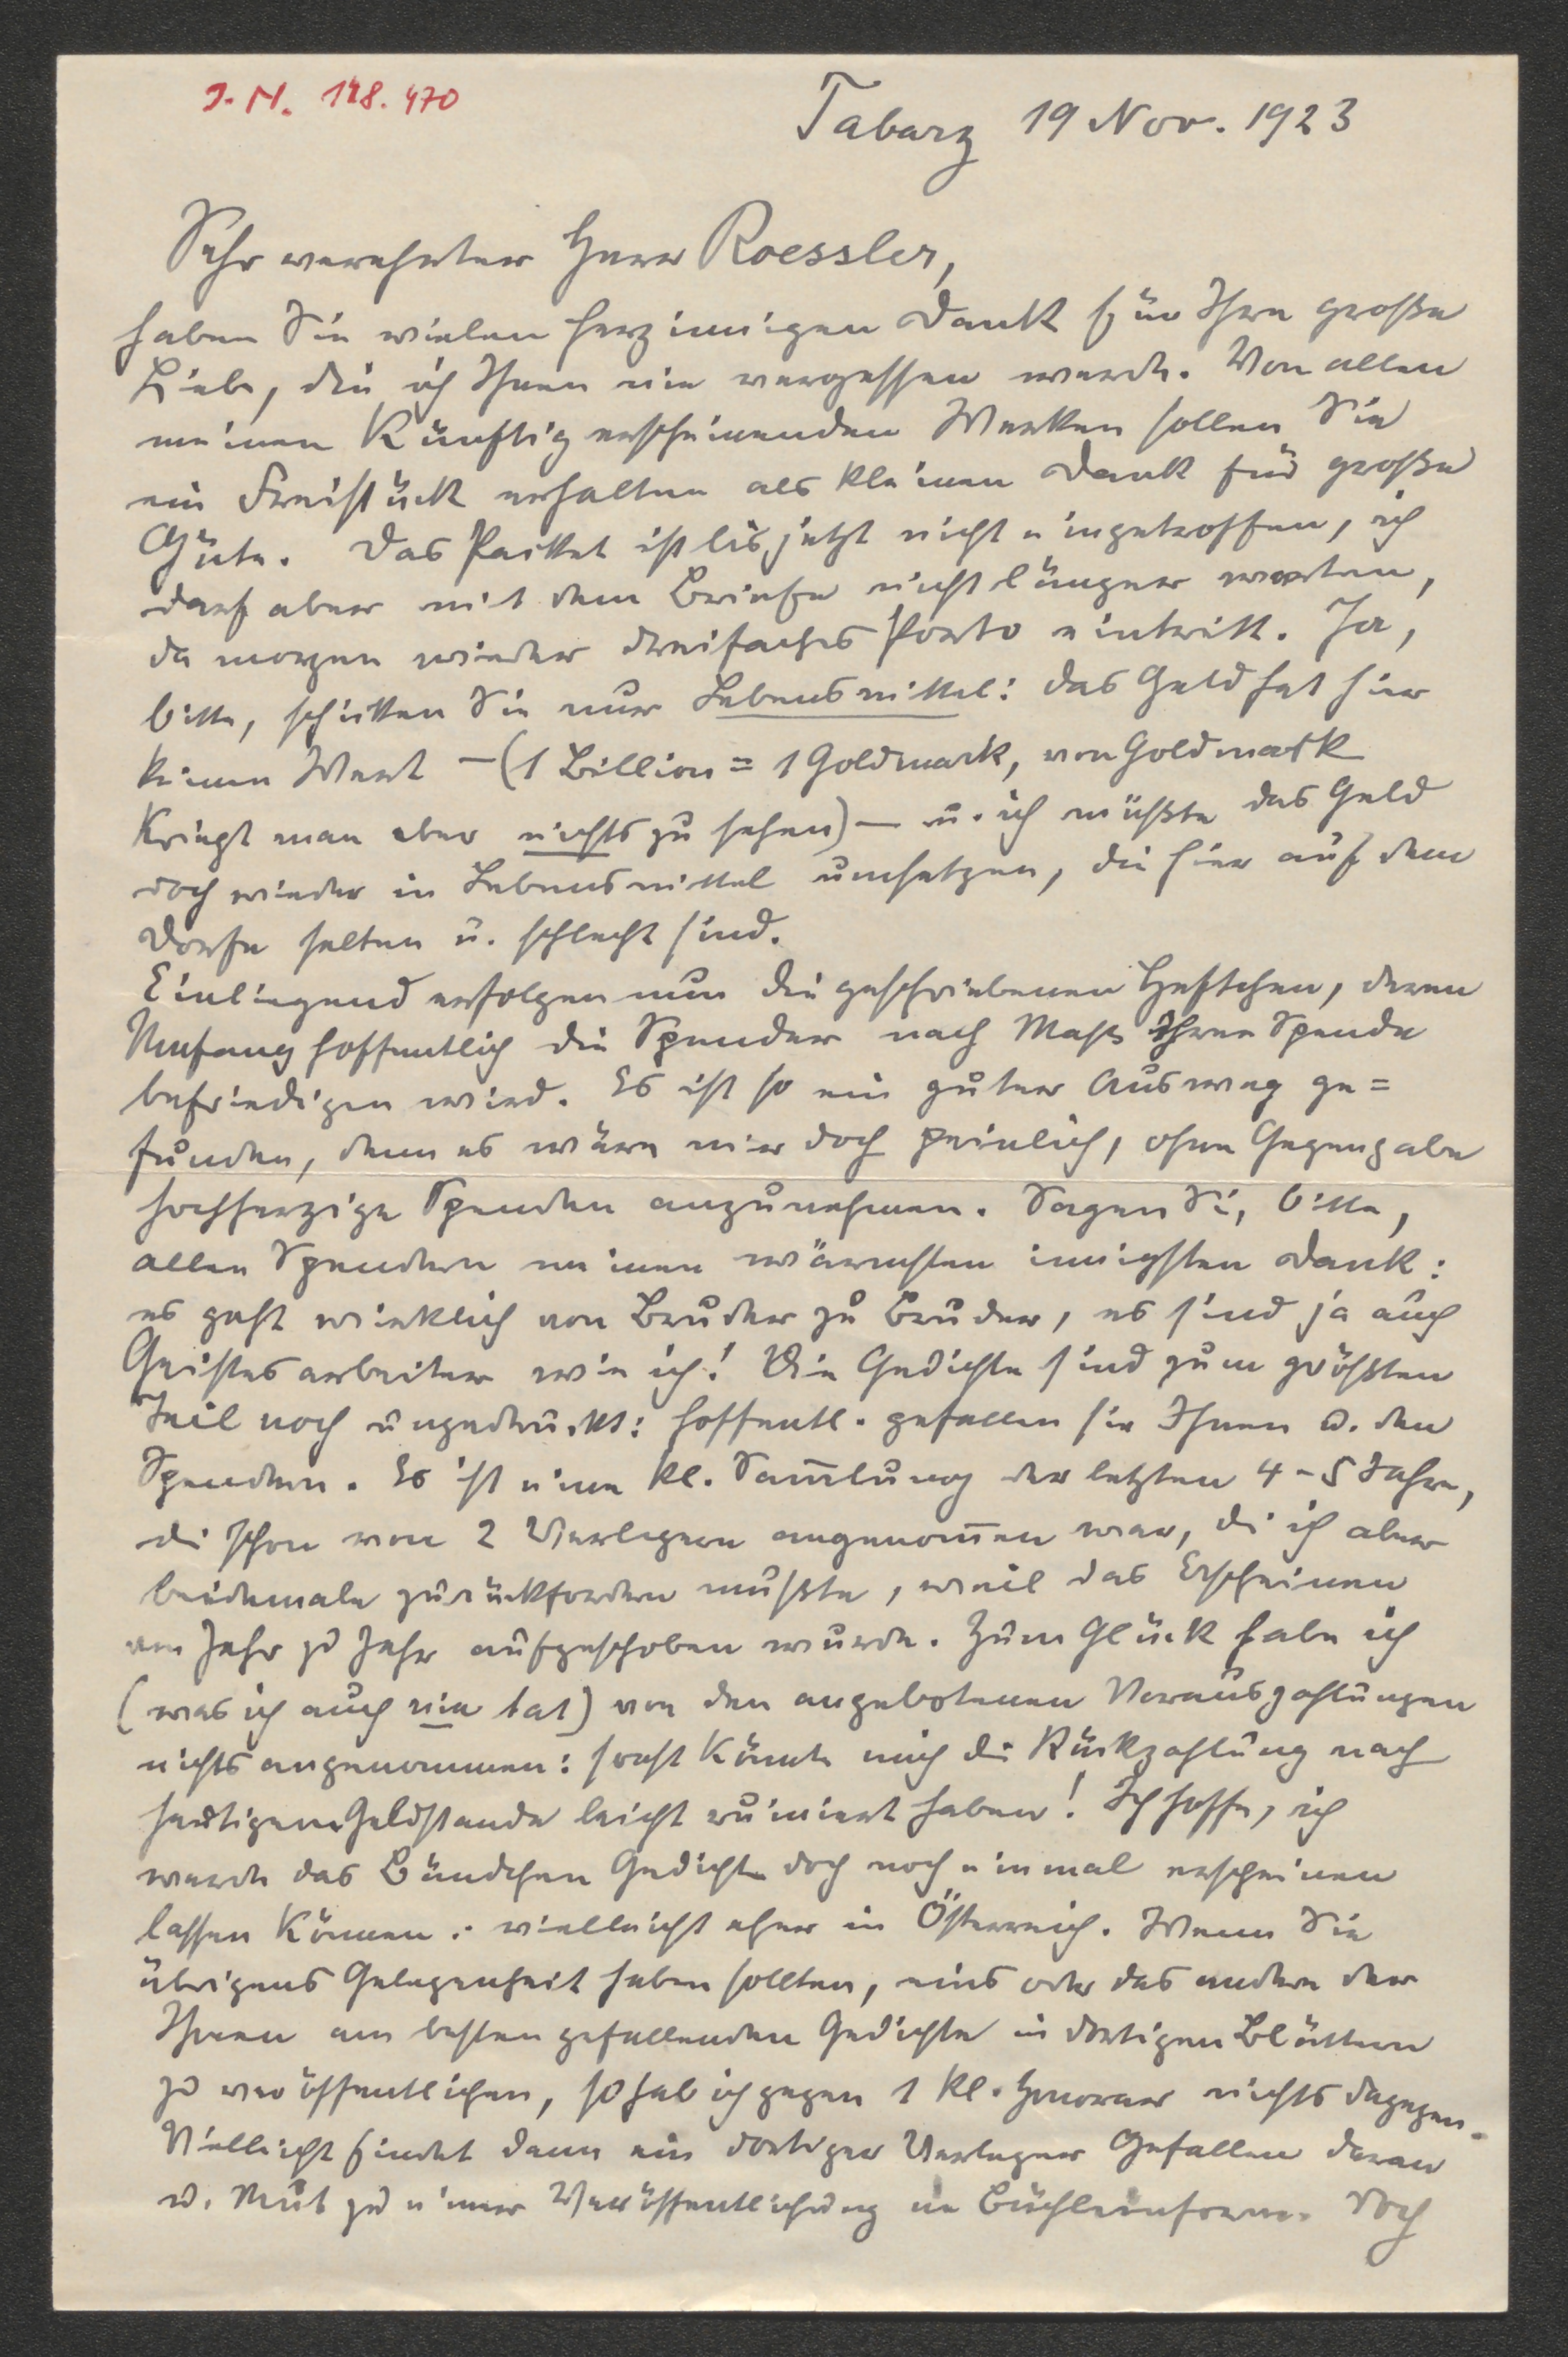 J. N. 148.470
Tabarz 19 Nov. 1923
Sehr verehrter Herr Roessler,
haben Sie vielen herzinnigen Dank für Ihre große
Liebe, die ich Ihnen nie vergessen werde. Von allen
meinen künftig erscheinenden Werken sollen Sie
ein Freistück erhalten als kleinen Dank für große
Güte. Das Packet ist bis jetzt nicht eingetroffen, ich
darf aber mit dem Briefe nicht länger warten,
da morgen wieder dreifaches Porto eintritt. Ja,
bitte, schicken Sie nur Lebensmittel: das Geld hat hier
keinen Wert – (1 Billion = 1 Goldmark, von Goldmark
kriegt man aber nichts zu sehen) – u. ich müßte das Geld
doch wieder in Lebensmittel umsetzen, die hier auf dem
Dorfe selten u. schlecht sind.
Einliegend erfolgen nun die geschriebenen Heftchen, deren
Umfang hoffentlich die Spender nach Maß ihrer Spende
befriedigen wird. Es ist so ein guter Ausweg ge=
funden, denn es wäre mir doch peinlich, ohne Gegengabe
hochherzige Spenden anzunehmen. Sagen Sie, bitte,
allen Spendern meinen wärmsten innigsten Dank:
es geht wirklich von Bruder zu Bruder, es sind ja auch
Geistesarbeiter wie ich! Die Gedichte sind zum größten
Teil noch ungedruckt: hoffentl. gefallen sie Ihnen u. den
Spendern. Es ist eine kl. Sam̄lung der letzten 4-5 Jahre,
die schon von 2 Verlegern angenom̄en war, die ich aber
beidemale zurückfordern mußte, weil das Erscheinen
von Jahr zu Jahr aufgeschoben wurde. Zum Glück habe ich
(was ich auch nie tat) von den angebotenen Vorauszahlungen
nichts angenommen: sonst könnte mich die Rückzahlung nach
heutigem Geldstande leicht ruiniert haben! Ich hoffe, ich
werde das Bändchen Gedichte doch noch einmal erscheinen
lassen können: vielleicht eher in Österreich. Wenn Sie
übrigens Gelegenheit haben sollten, eins oder das andere der
Ihnen am besten gefallenden Gedichte in dortigen Blättern
zu veröffentlichen, so hab ich gegen 1 kl. Honorar nichts dagegen.
Vielleicht findet dann ein dortiger Verleger Gefallen daran
u. Mut zu einer Veröffentlichung in Büchleinform. Doch